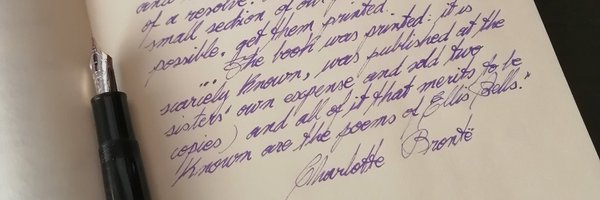 of a resolve.
small section of our
possible, get them printed.
"... The book was printed: it is
scarcely known, was published at the
sisters' own expense and sold two
copies) and all of it that merits to be
known are the poems of Ellis Bells."
Charlotte Brontë